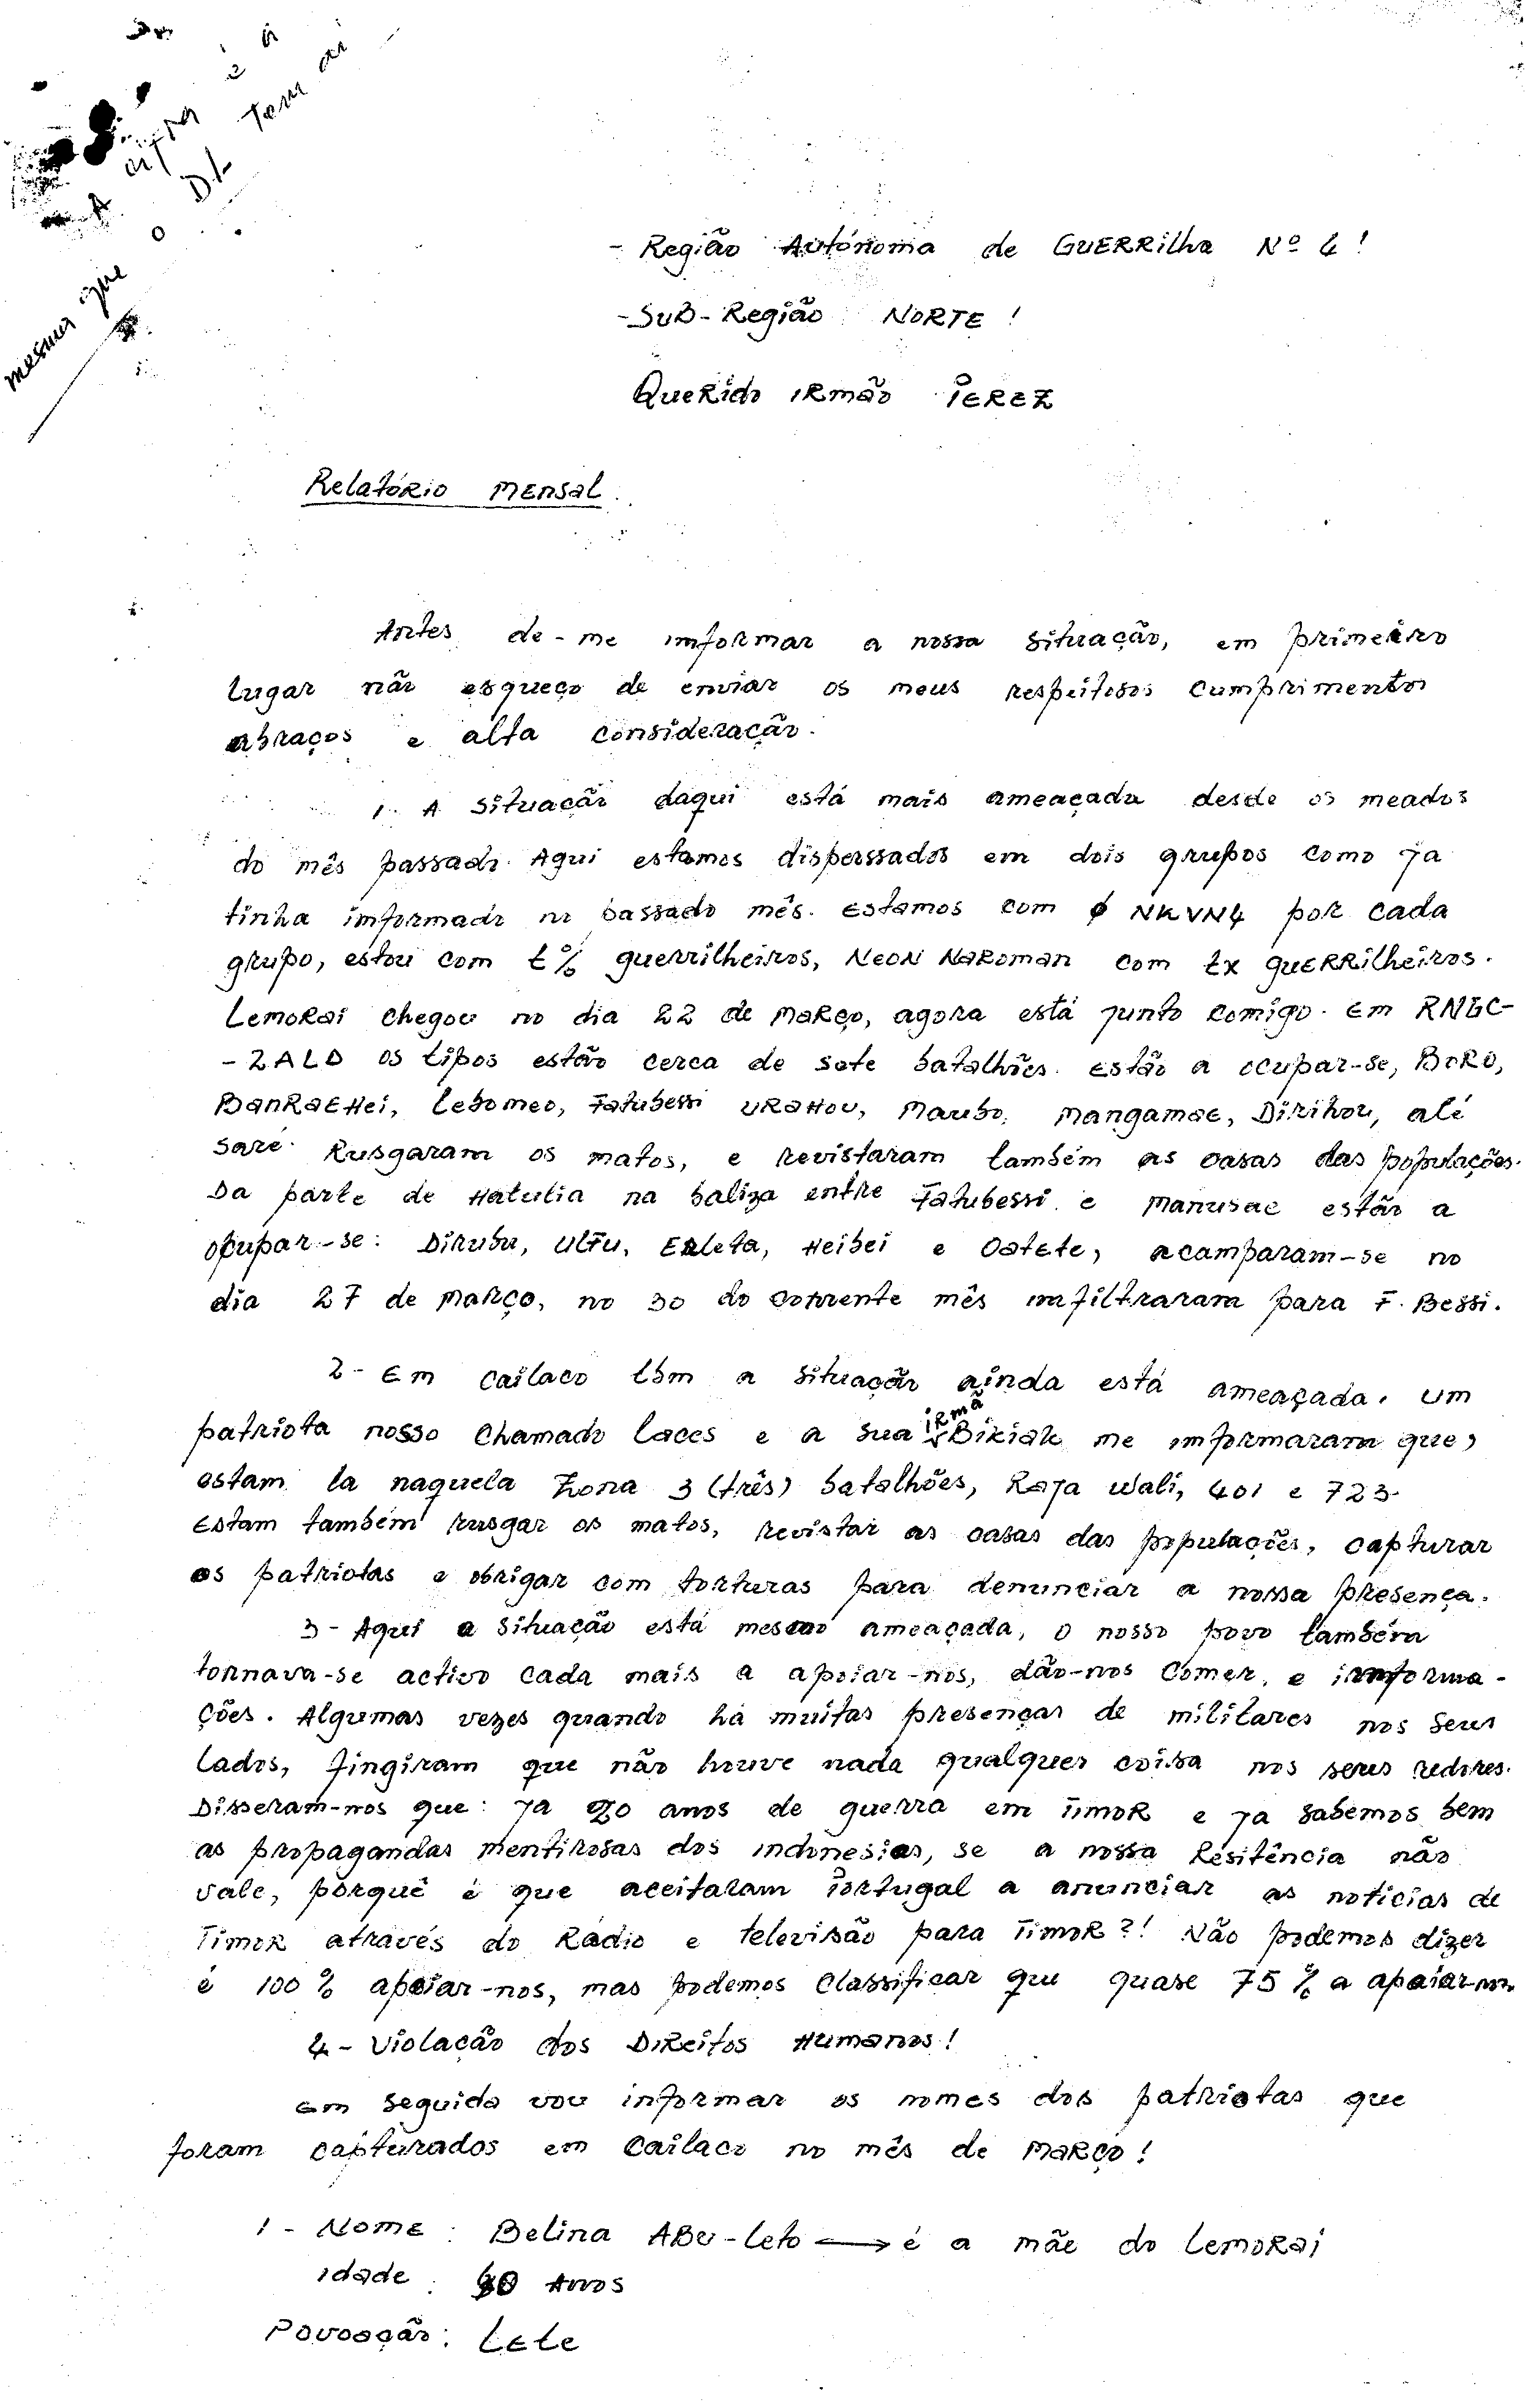 mesmo que
o DL Tem aí
- Região Autónoma de GUERRilha Nº 4!
- SUB-Região NORTE!
QueRido IRmão PEREZ
RelatóRio MEnsal.
Antes de-me imformar a nossa situação, em primeiro
lugar não esqueço de enviar os meus respeitosos cumprimentos
abraços e alta consideração.
1. A situação daqui está mais ameaçada desde os meados
do mês passado. Aqui estamos disperssados em dois grupos como ja
tinha imformado no passado mês. Estamos com ϕ NKVN4 por cada
grupo, estou com t% guerrilheiros, NeoN NaRoman com tx guERRilheiros.
LemoRai chegou no dia 22 de MaRço, agora está junto comigo. Em RNGC-
-ZALD os tipos estão cerca de sete batalhões. Estão a ocupar-se, BoRo,
BanRaEHei, Lebomeo, Fatubessi URaHou, Maubo, Mangamae, Dirihou, até
Saré. Rusgaram os matos, e revistaram também as casas das populações.
Da parte de Hatulia na baliza entre Fatubessi e Manusae estão a
ocupar-se: Dirubu, UlFu, ERleta, Heibei e OatEte, acamparam-se no
dia 27 de MaRço, no 30 do corrente mês imfiltraram para F. Bessi.
2- Em Cailaco tbm a situação ainda está ameaçada. Um
patriota nosso chamado Laces e a sua irmã Bikiak me imformaram que,
estam la naquela Zona 3 (três) batalhões, Raja Wali, 401 e 723.
Estam também rusgar os matos, revistar as casas das populações, capturar
os patriotas e obrigar com torturas para denunciar a nossa presença.
3- Aqui a situação está mesmo ameaçada, o nosso povo também
tornava-se activo cada mais a apoiar-nos, dão-nos comer, e imforma-
ções. Algumas vezes quando há muitas presenças de militares nos seus
lados, fingiram que não houve nada qualquer coisa nos seus redores.
Disseram-nos que: ja 20 anos de guerra em TimoR e ja sabemos bem
as propagandas mentirosas dos indonesios, se a nossa Resitência não
vale, porquê é que aceitaram Portugal a anunciar as noticias de
TimoR através do Radio e televisão para TimoR?! Não podemos dizer
é 100% apoiar-nos, mas podemos classificar que quase 75% a apoiar-nos.
4- Violação dos DiReitos Humanos!
Em seguida vou informar os nomes dos patriotas que
foram capturados em Cailaco no mês de MaRço!
1- NomE: Belina ABu-Leto → é a mãe do LemoRai
idade: 40 Anos
Povoação: LEte